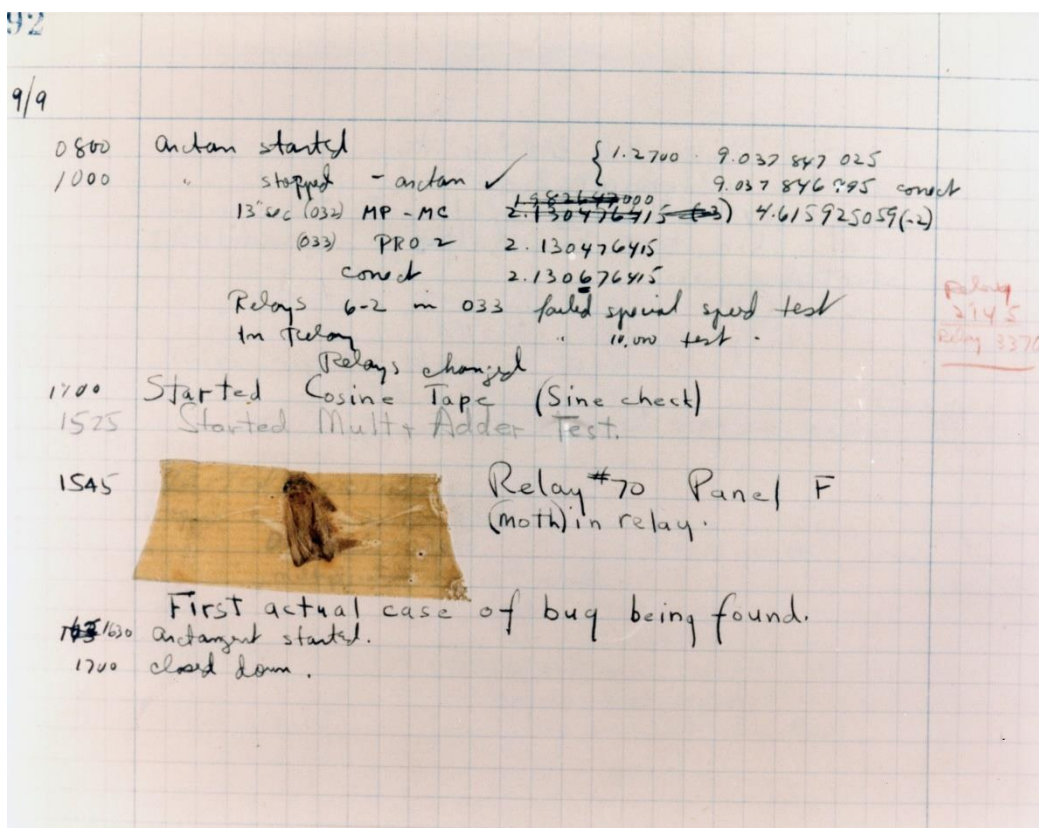 92
9/9
0800 arctan started { 1.2700 9.037 847 025
1000 " stopped - arctan ✓ 9.037 846 995 correct
13" sec (032) MP - MC 1.982647000 2.130476415 (-3) 4.615925059(-2)
(033) PRO 2 2.130476415
correct 2.130676415
Relays 6-2 in 033 failed special speed test
In Relay " 10,000 test .
Relay
2145
Relay 3370
Relays changed
1700 Started Cosine Tape (Sine check)
1525 Started Mult+ Adder Test.
1545 Relay #70 Panel F
(moth) in relay.
First actual case of bug being found.
1630 arctangent started.
1700 closed down.